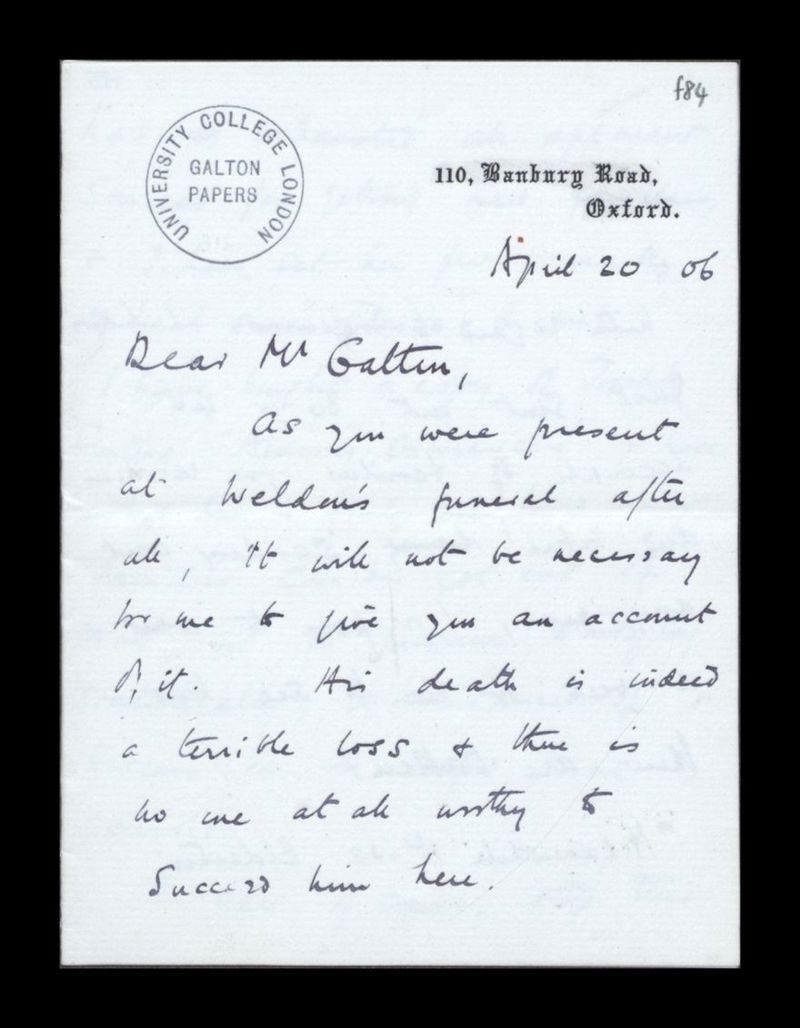 f84
UNIVERSITY COLLEGE LONDON
GALTON
PAPERS
110, Banbury Road,
Oxford.
April 20 06
Dear Mr Galton,
As you were present
at Weldon's funeral after
all, it will not be necessary
for me to give you an account
of it His death is indeed
a terrible loss & there is
no one at all worthy to
succeed him here.